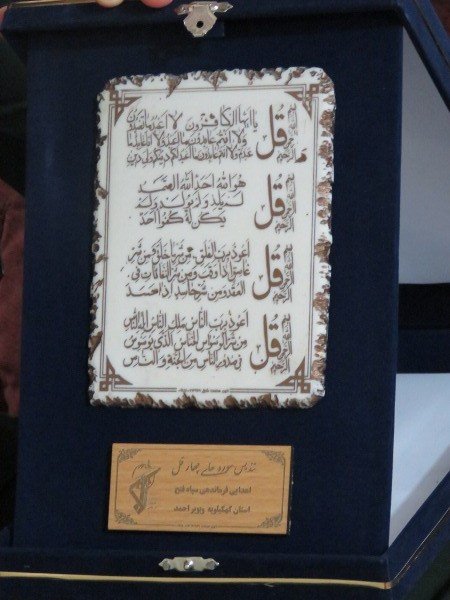 بسم الله الرحمن الرحيم
قل يا ايها الكافرون لا اعبد ما تعبدون
ولا انتم عابدون ما اعبد ولا انا عابد ما
عبدتم ولا انتم عابدون ما اعبد لكم دينكم ولي دين
بسم الله الرحمن الرحيم
قل هو الله احد الله الصمد
لم يلد ولم يولد ولم
يكن له كفوا احد
بسم الله الرحمن الرحيم
قل اعوذ برب الفلق من شر ما خلق ومن شر
غاسق اذا وقب ومن شر النفاثات في
العقد ومن شر حاسد اذا حسد
بسم الله الرحمن الرحيم
قل اعوذ برب الناس ملك الناس اله الناس
من شر الوسواس الخناس الذي يوسوس
في صدور الناس من الجنة والناس
تندیس سوره های چهار قل
اهدایی فرماندهی سپاه فتح
استان کهگیلویه وبویر احمد